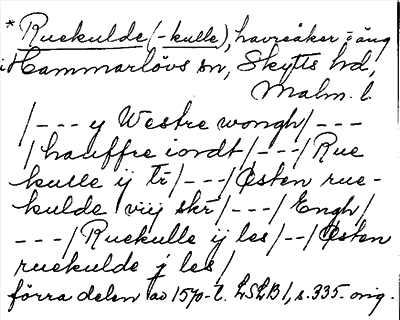 * Ruekulde (-kulle), havreåker o äng
i Hammarlövs sn, Skytts hd,
Malm. l.
/--- y Westre wongh/---
/hauffre iordt/---/Rue
kulle ij tr/---/Østen rue-
kulde viij skr/---/Engh/
---/Ruekulle ij les/--/Østen
ruekulde j les/
förra delen av 1570-t. LSLB 1, s. 335. orig.